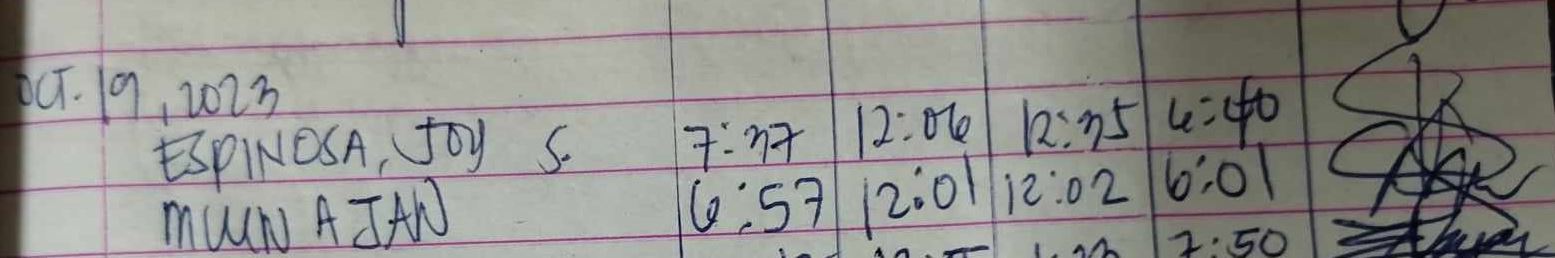 OCT. 19, 2023
ESPINOSA, JOY S. 7:37 12:06 12:35 6:40
A JAN 6:57 12:01 12:02 6:01
7:50